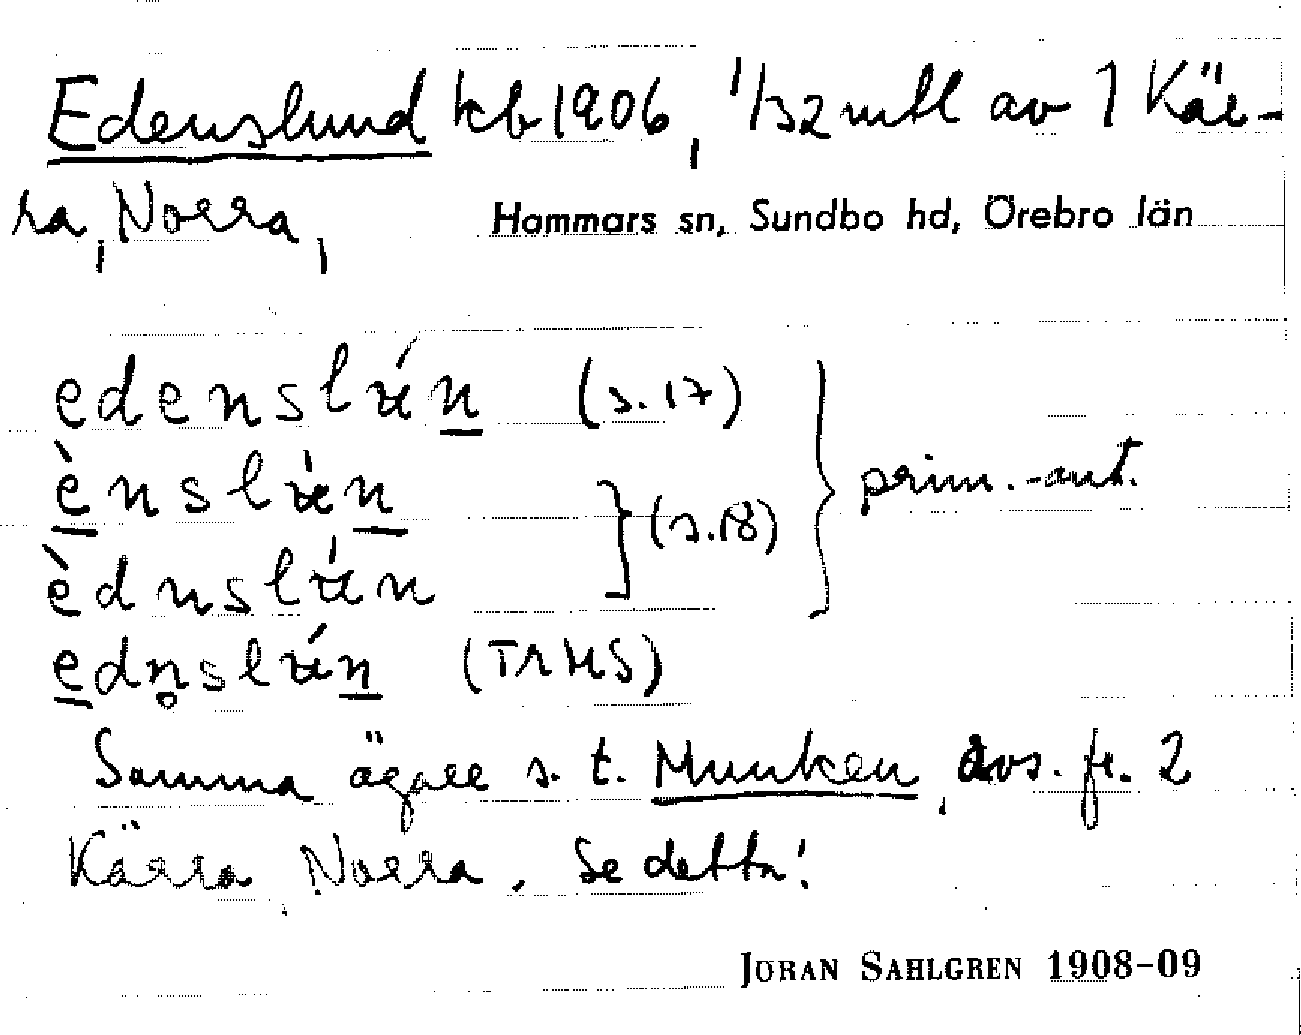 Edenslund kb 1906, 1/32 mtl av 1 Kär-
ra, Norra, Hammars sn, Sundbo hd, Örebro län
edenslún (s. 17)
ènslún
} (s. 18) } prim.-ant.
èdnslún
edn̥slún (TRHS)
Samma ägare s. t. Munken, avs. fr. 2
Kärra Norra. Se detta!
JÖRAN SAHLGREN 1908-09